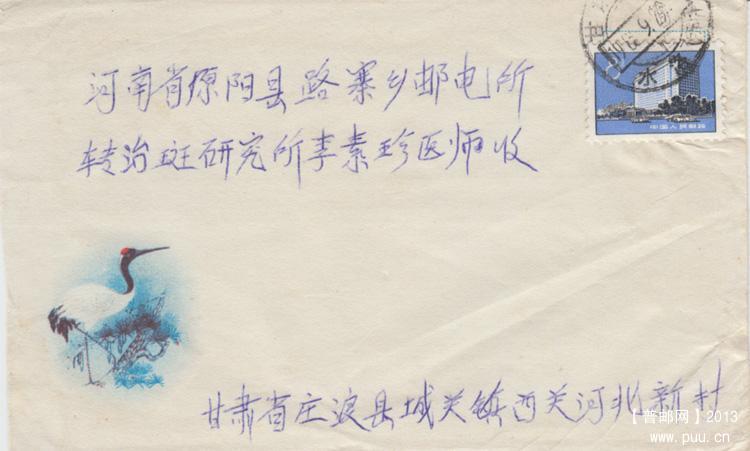 河南省原阳县路寨乡邮电所
转治斑研究所李素珍医师收
中国人民邮政
甘肃省庄浪县城关镇西关河北新村
【普邮网】2013
www.puu.cn